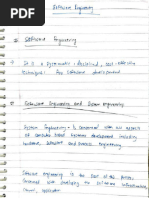 Software Engineering
Software Engineering
It is a systematic, disciplined, cost-effective
techniques for software development
Software Engineering and System engineering
System Engineering - is concerned with all aspects
of computer based systems development including
hardware, software and process engineering.
Software engineering is the part of this process
concerned with developing the software infrastructure,
control, application